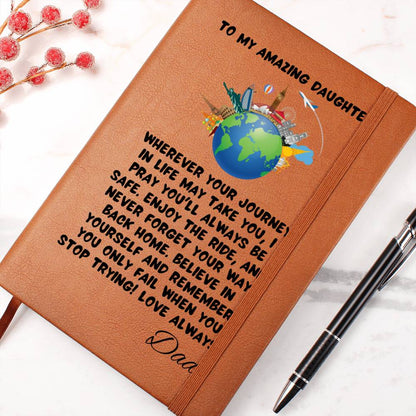 TO MY AMAZING DAUGHTE
WHEREVER YOUR JOURNEY
IN LIFE MAY TAKE YOU, I
PRAY YOU'LL ALWAYS BE
SAFE. ENJOY THE RIDE, AN
NEVER FORGET YOUR WAY
BACK HOME. BELIEVE IN
YOURSELF AND REMEMBER
YOU ONLY FAIL WHEN YOU
STOP TRYING! LOVE ALWAY
Dad